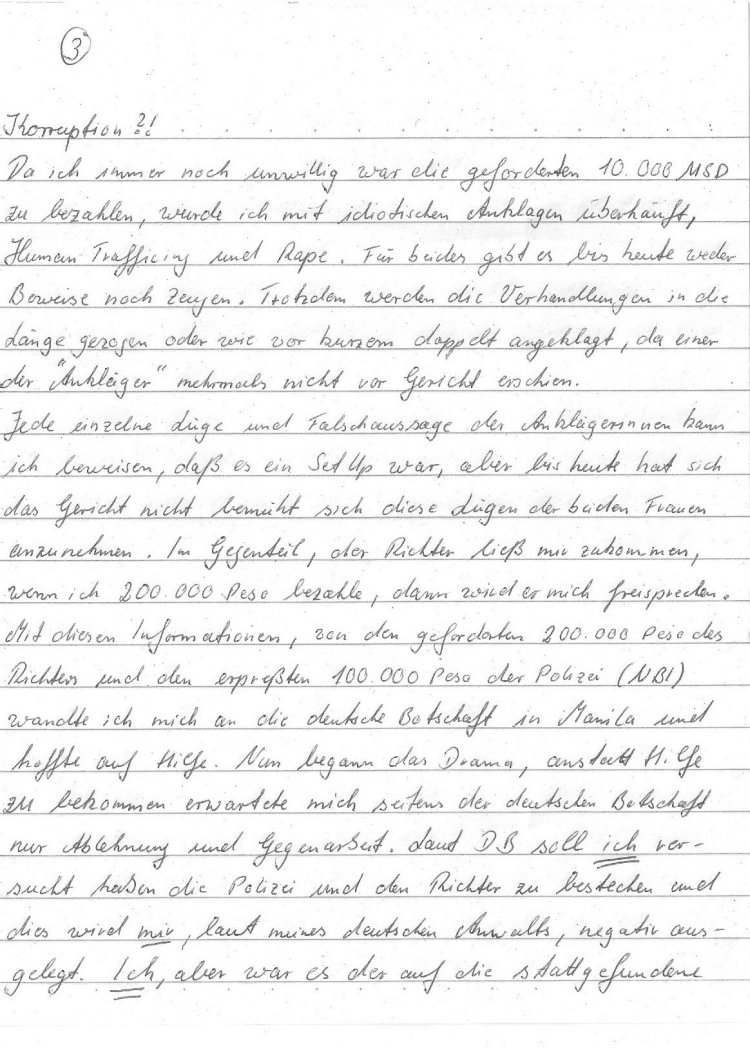 3
Korruption ?!
Da ich immer noch unwillig war die geforderten 10.000 USD
zu bezahlen, wurde ich mit idiotischen Anklagen überhäuft,
Human Trafficing und Rape. Für beides gibt es bis heute weder
Beweise noch Zeugen. Trotzdem werden die Verhandlungen in die
Länge gezogen oder wie vor kurzem doppelt angeklagt, da einer
der "Ankläger" mehrmals nicht vor Gericht erschien.
Jede einzelne Lüge und Falschaussage der Anklägerinnen kann
ich beweisen, daß es ein Set Up war, aber bis heute hat sich
das Gericht nicht bemüht sich diese Lügen der beiden Frauen
anzunehmen. Im Gegenteil, der Richter ließ mir zukommen,
wenn ich 200.000 Peso bezahle, dann wird er mich freisprechen.
Mit diesen Informationen, von den geforderten 200.000 Peso des
Richters und den erpreßten 100.000 Peso der Polizei (NBI)
wandte ich mich an die deutsche Botschaft in Manila und
hoffte auf Hilfe. Nun begann das Drama, anstatt Hilfe
zu bekommen erwartete mich seitens der deutschen Botschaft
nur Ablehnung und Gegenarbeit. Laut DB soll ich ver-
sucht haben die Polizei und den Richter zu bestechen und
dies wird mir, laut meines deutschen Anwalts, negativ aus-
gelegt. Ich, aber war es der auf die stattgefundene